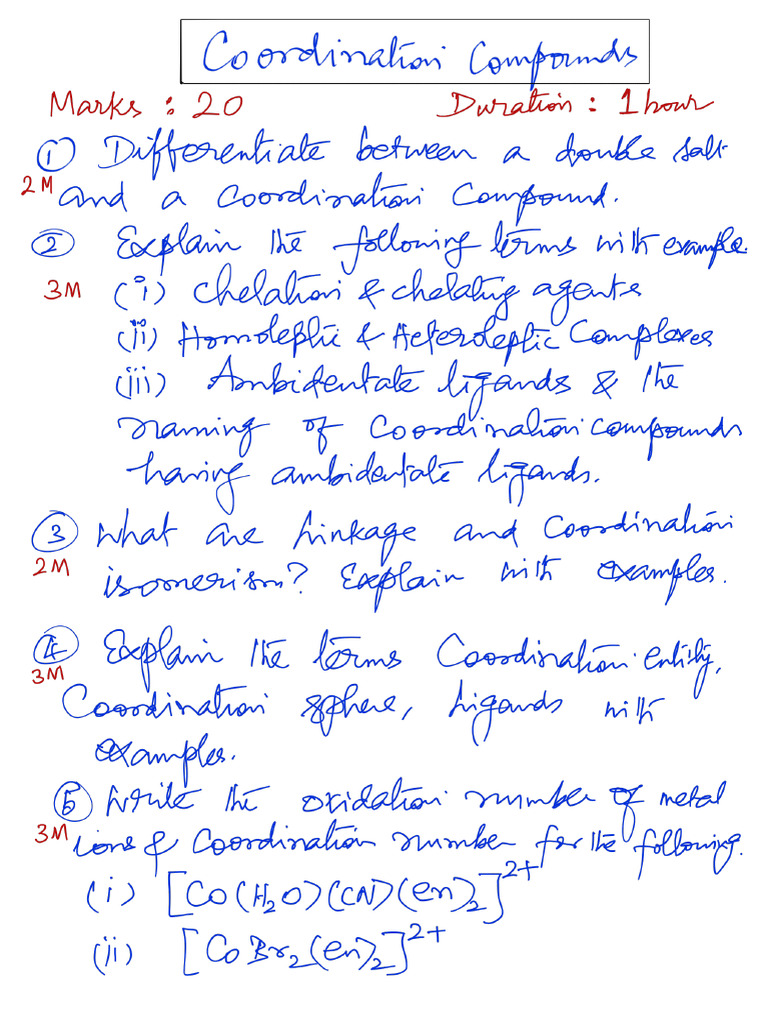 Coordination Compounds
Marks : 20 Duration : 1 hour
① Differentiate between a double salt
2M and a Coordination Compound.
② Explain the following terms with example.
3M (i) chelation & chelating agents
(ii) Homoleptic & Heteroleptic Complexes
(iii) Ambidentate ligands & the
naming of Coordination compounds
having ambidentate ligands.
③ What are Linkage and Coordination
2M isomerism? Explain with examples.
④ Explain the terms Coordination entity,
3M
Coordination sphere, Ligands with
examples.
⑤ Write the oxidation number of metal
3M ions & Coordination number for the following.
(i) [Co(H₂O)(CN)(en)₂]²⁺
(ii) [CoBr₂(en)₂]²⁺